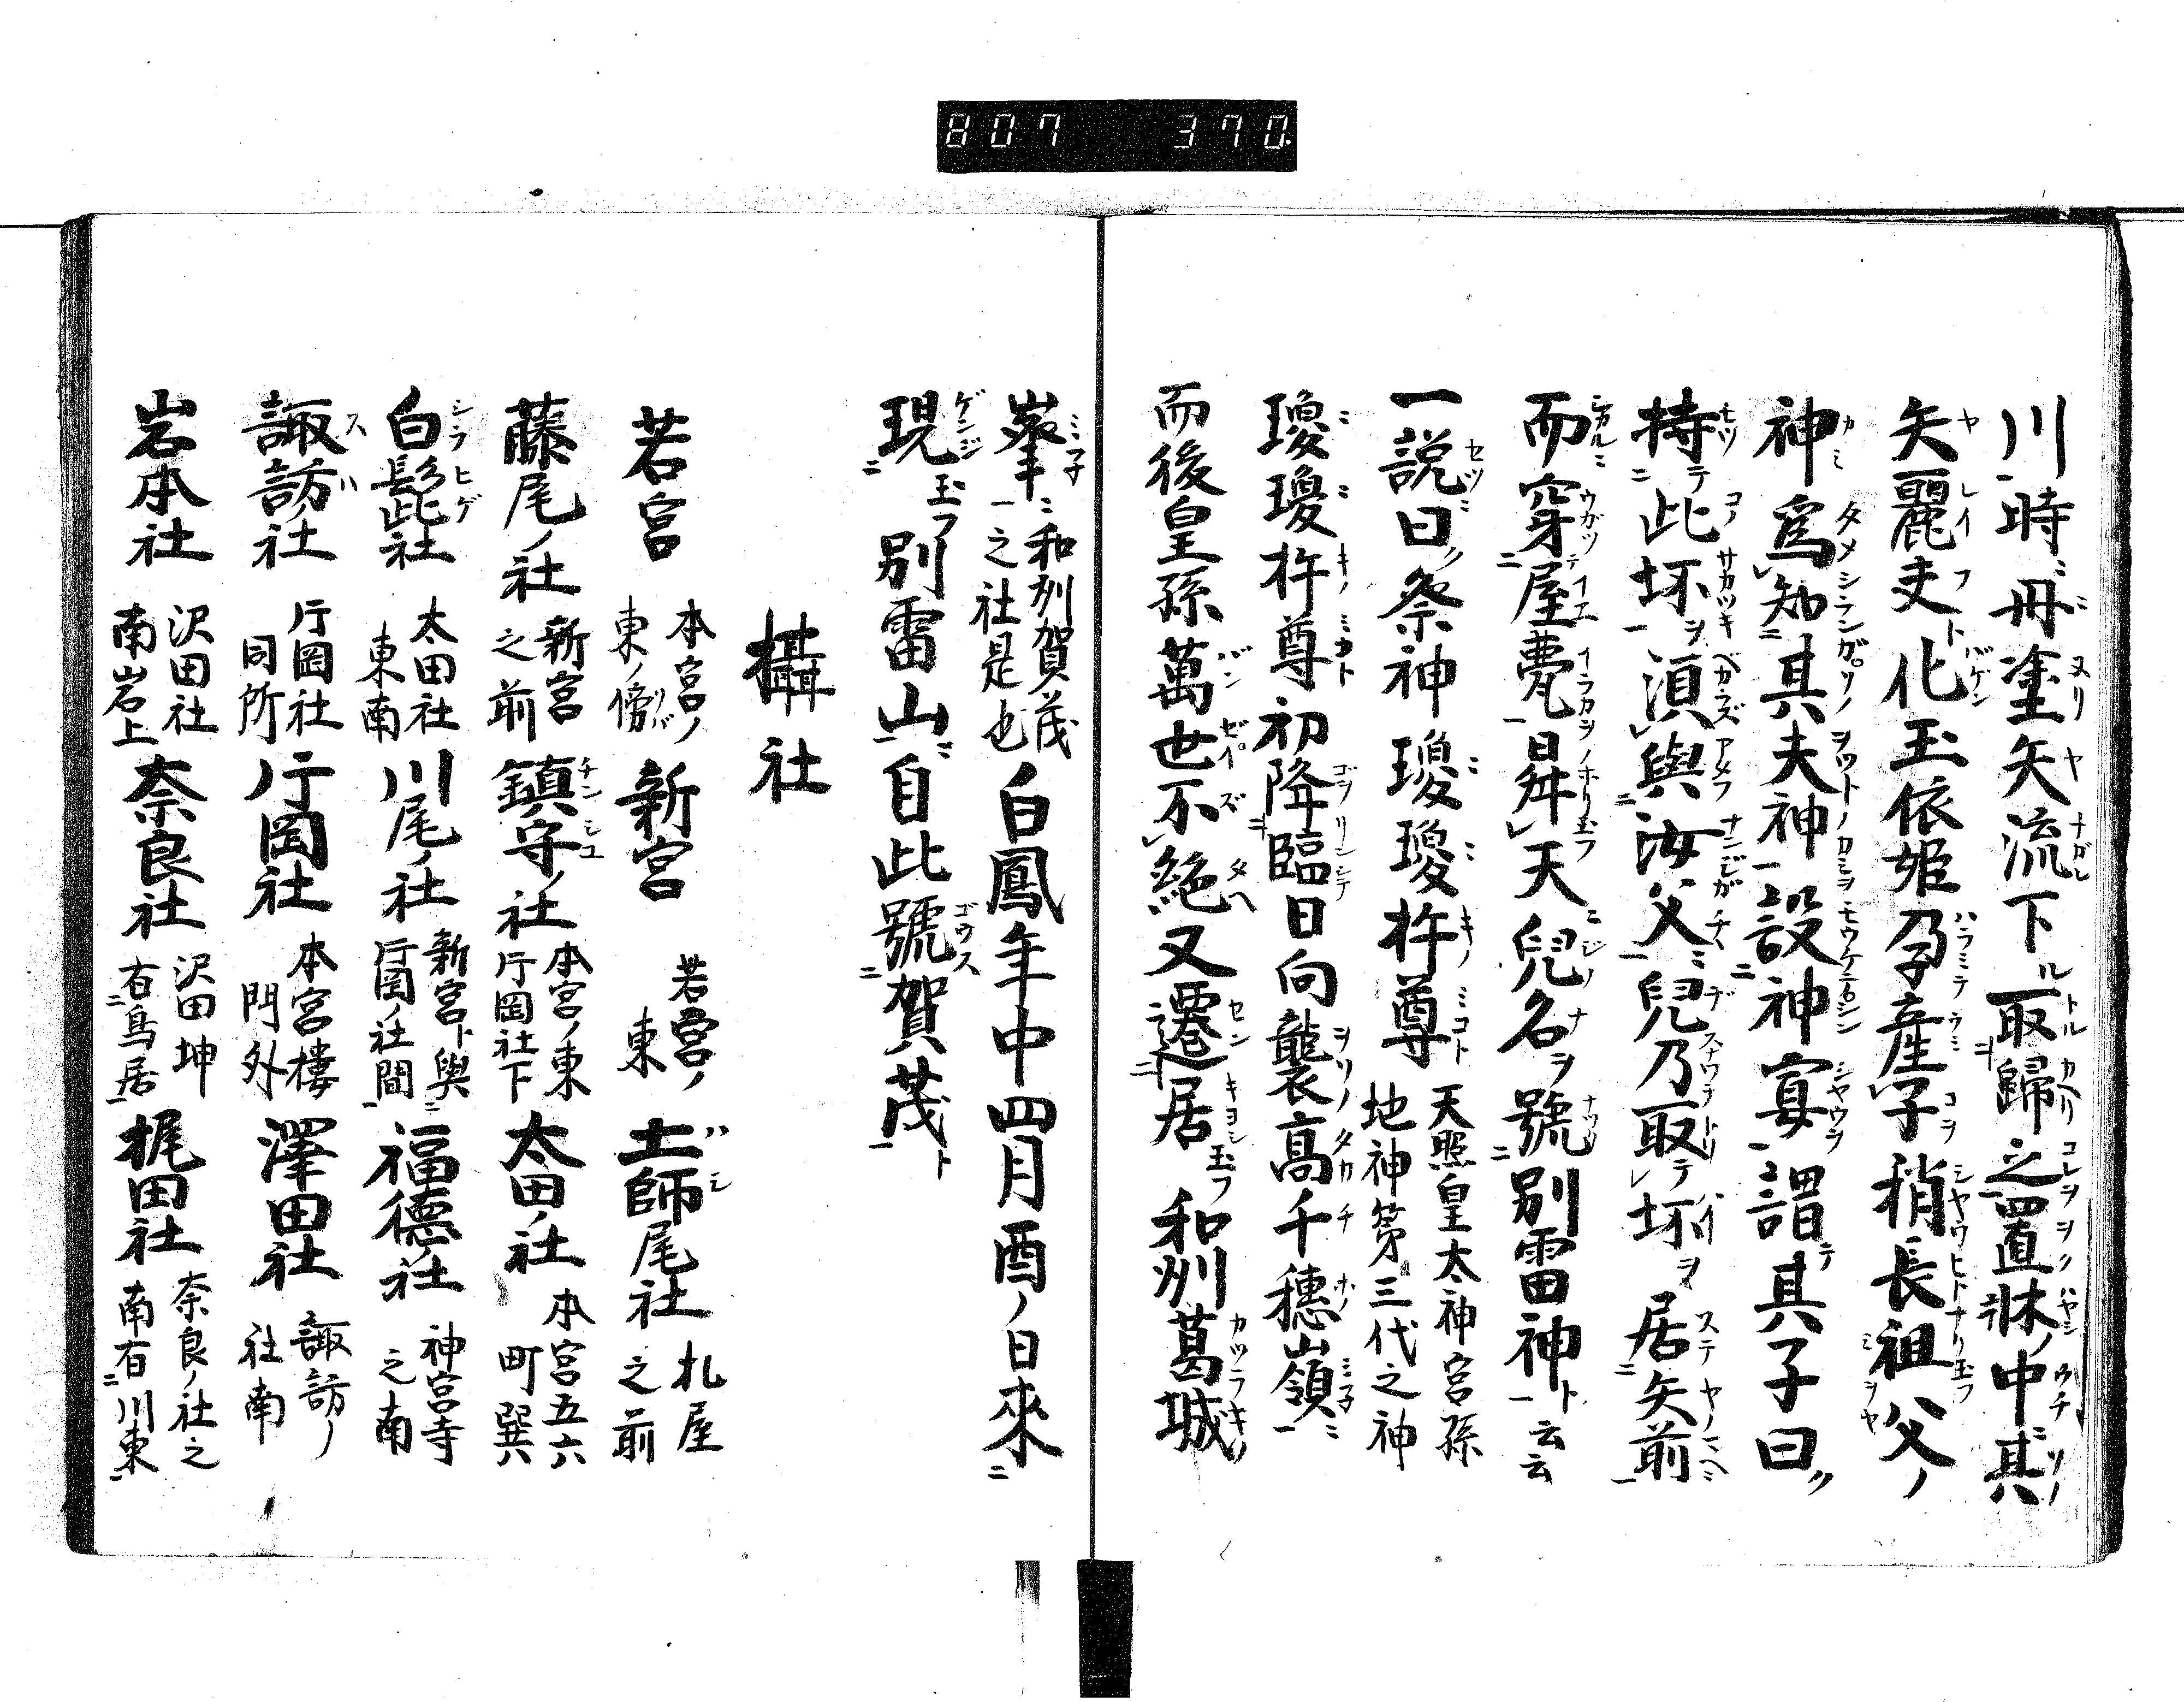 807 370.
川時丹塗矢流下取歸之置牀中其
矢麗夫化玉依姫孕産子稍長祖父
神爲知其夫神設神宴謂其子曰
持此坏須與汝父兒乃取坏居矢前
而穿屋甍昇天兒名號別雷神云云
一説曰祭神瓊瓊杵尊 天照皇太神宮孫
地神第三代之神
瓊瓊杵尊初降臨日向襲高千穗山嶺
而後皇孫萬世不絶又遷居玉フ和州葛城
峯 和州賀茂
之社是也 白鳳年中四月酉ノ日來
現玉フ別雷山自此號賀茂
攝社
若宮 本宮ノ
東ノ傍 新宮 若宮ノ
東 土師尾社 札屋
之前
藤尾ノ社 新宮
之前 鎮守ノ社 本宮ノ東
片岡社下 太田ノ社 本宮五六
町巽
白髭社 太田社
東南 川尾ノ社 新宮ト與
片岡ノ社間 福德ノ社 神宮寺
之南
諏訪ノ社 片岡社
同所 片岡社 本宮樓
門外 澤田社 諏訪ノ
社南
岩本社 沢田社
南岩上 奈良社 沢田坤
有鳥居 梶田社 奈良ノ社之
南有川東